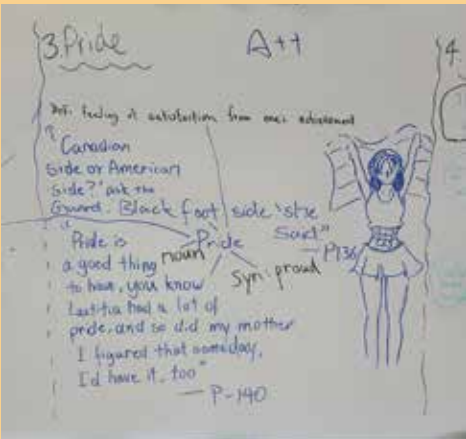 3. Pride
A++
4.
Def: feeling of satisfaction from one's achievement
"Canadian
side or American
side?" ask the
Guard. Blackfoot side 'she
Said"
— P136
"Pride is
a good thing
to have, you know
Laetitia had a lot of
pride, and so did my mother
I figured that someday,
I'd have it, too"
— P-140
Pride
noun
Syn: proud